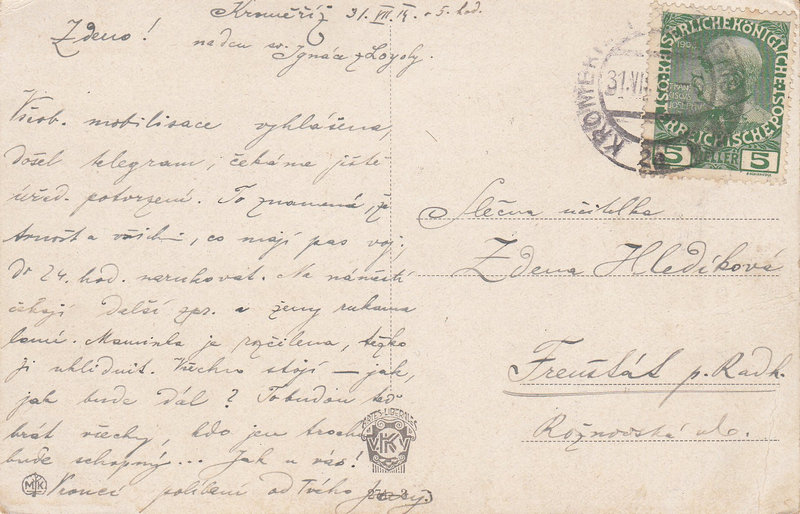 Kroměříž 31.VII.14. 5 hod.
Zdeno! na den sv. Ignáce z Loyoly.
Všeob. mobilisace vyhlášena,
došel telegram, čekáme ještě
úřed. potvrzení. To znamená, že
a všichni, co mají pas voj.
do 24 hod. narukovat. Na náměstí
čekají další zpr. a ženy rukama
lomí. Maminka je rozčilena, těžko
ji uklidnit. Všechno stojí – jak,
jak bude dál? To budou teď
brát všechny, kdo jen trochu
bude schopný... Jak u vás!
Vroucí políbení od Tvého
Slečna učitelka
Zdena Hledíková
Frenštát p. Radh.
Rožnovská ul.
KAISERLICHE KÖNIGLICHE
ÖSTERREICHISCHE
5 HELLER 5
31.VII
ARTES LIBERALES
MK